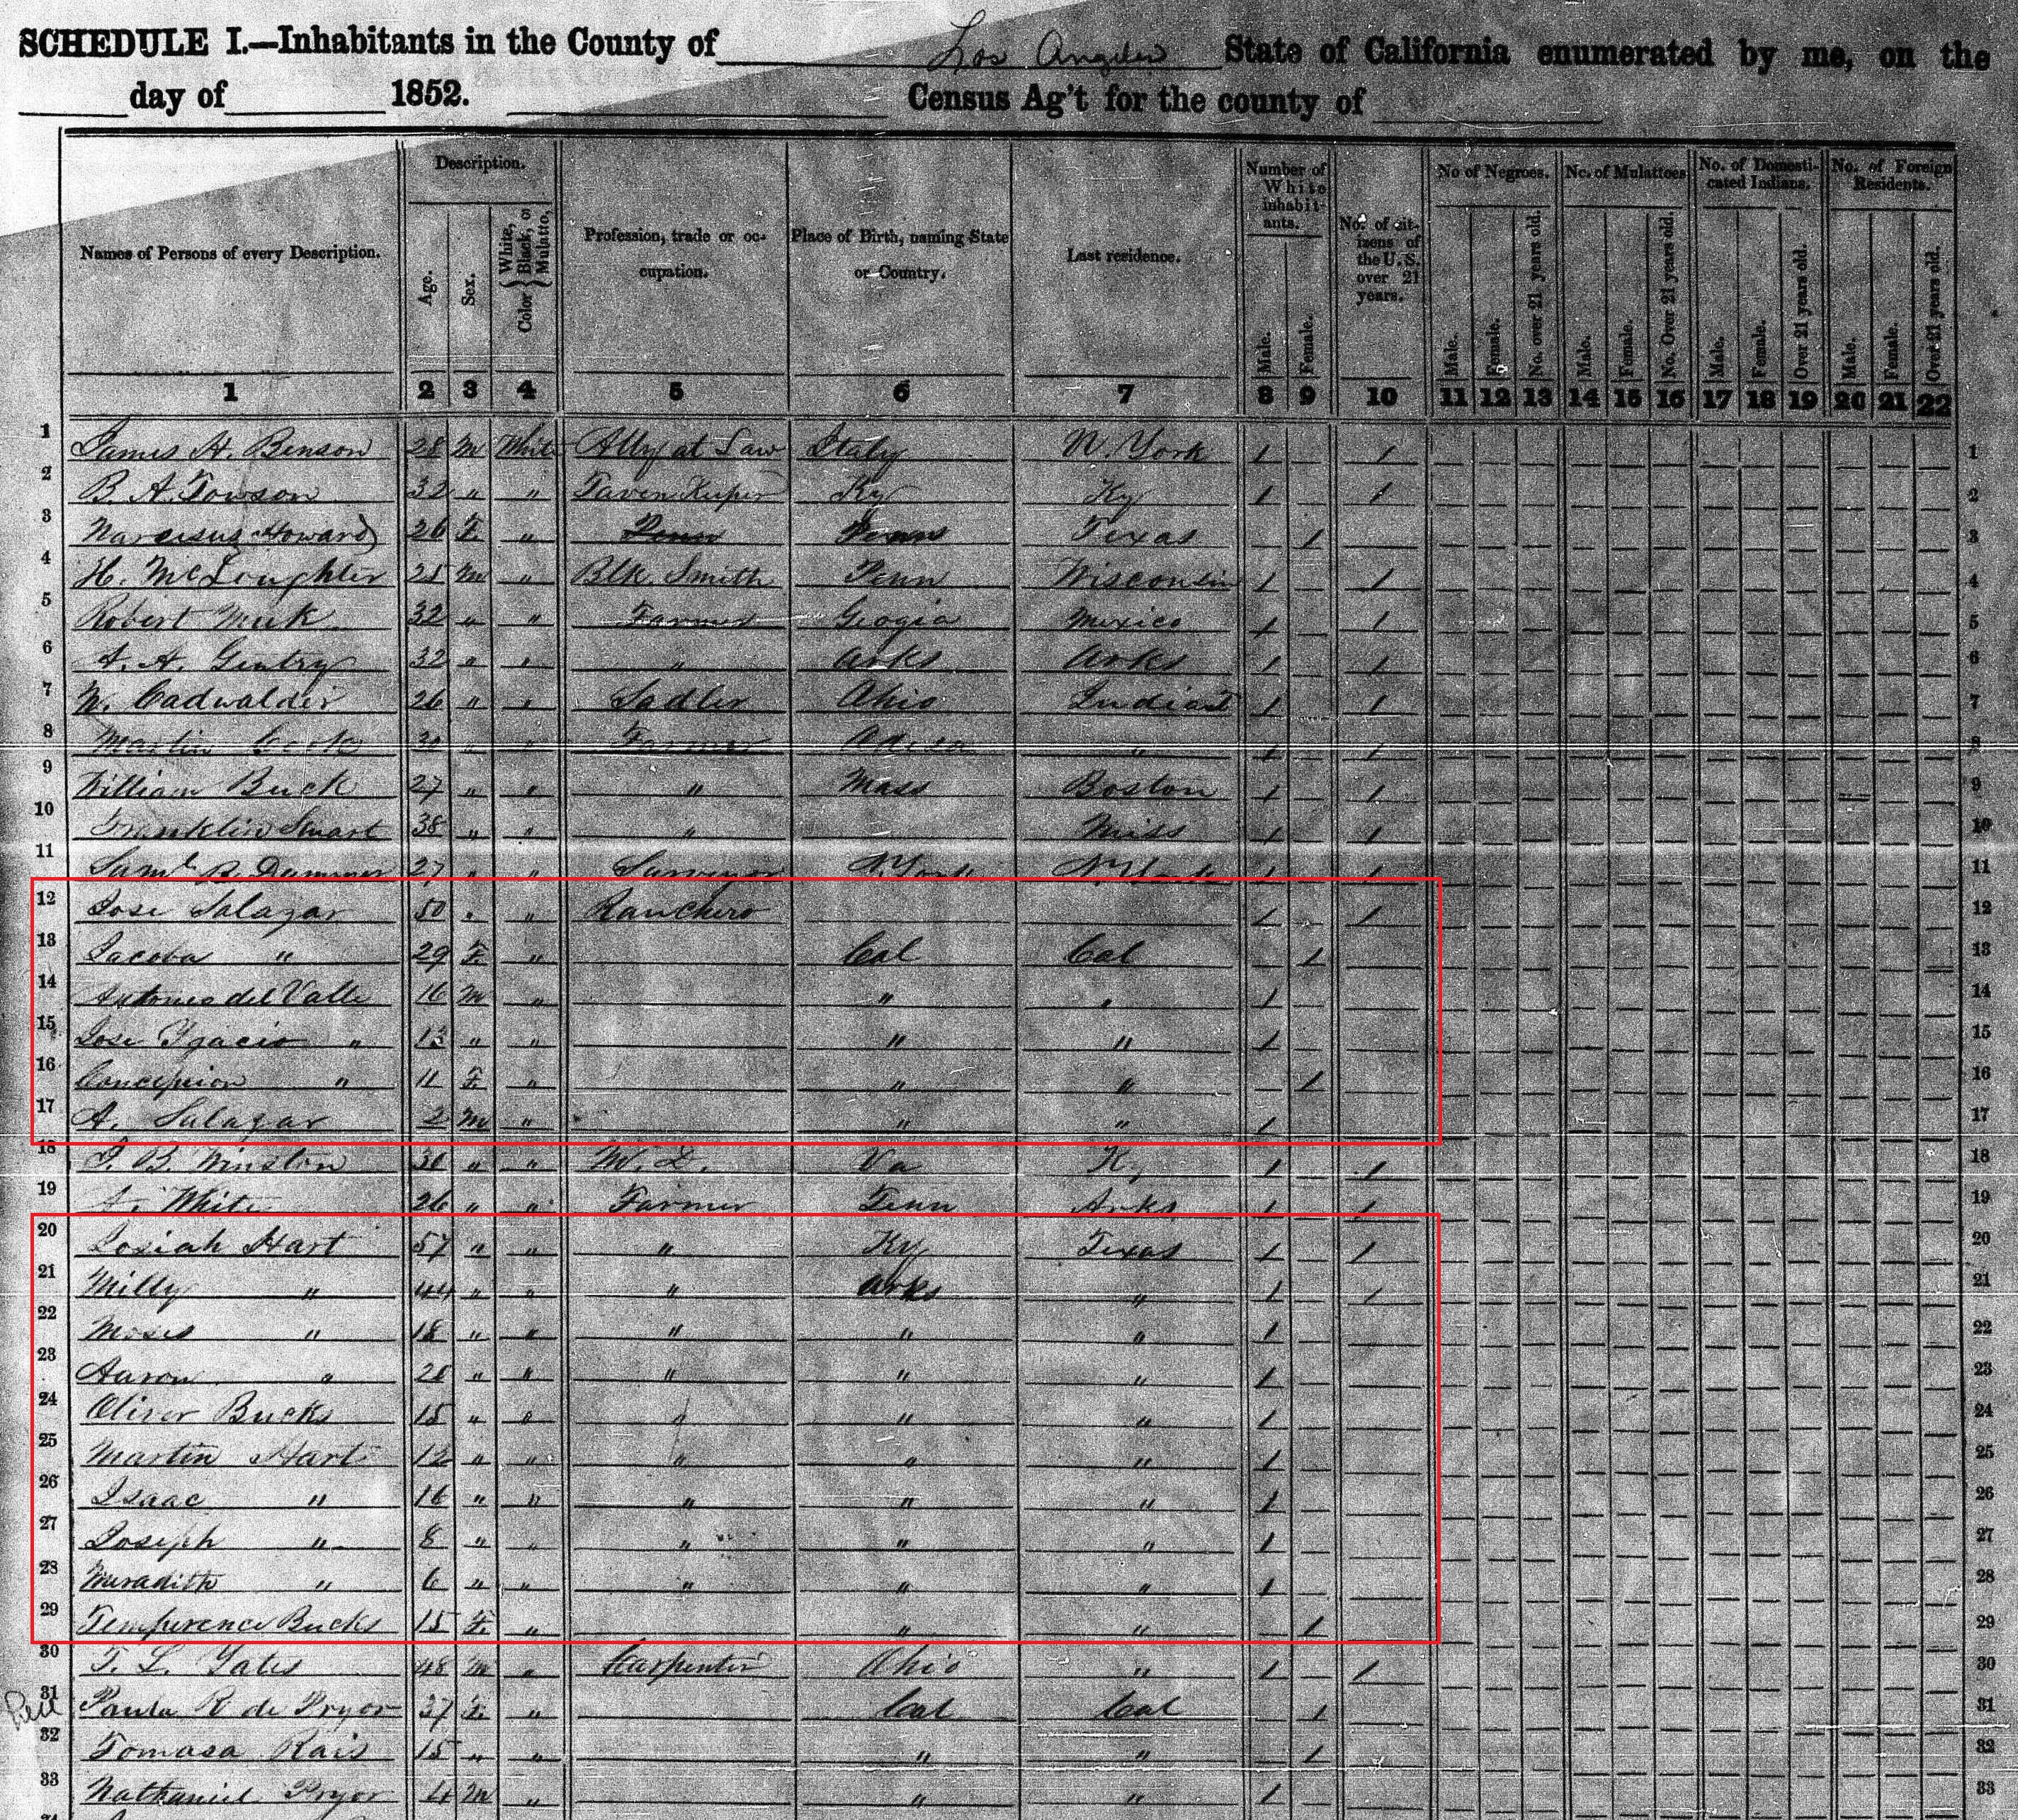 SCHEDULE I.—Inhabitants in the County of Los Angeles State of California enumerated by me, on the
day of 1852. Census Ag't for the county of
Names of Persons of every Description.
Description.
Age.
Sex.
Color { White, Black, or Mulatto, }
Profession, trade or occupation.
Place of Birth, naming State or Country.
Last residence.
Number of White inhabitants.
Male.
Female.
No. of citizens of the U.S. over 21 years.
No of Negroes.
Male.
Female.
No. over 21 years old.
No. of Mulattoes
Male.
Female.
No. Over 21 years old.
No. of Domesticated Indians.
Male.
Female.
Over 21 years old.
No. of Foreign Residents.
Male.
Female.
Over 21 years old.
1 2 3 4 5 6 7 8 9 10 11 12 13 14 15 16 17 18 19 20 21 22
1 James H. Benson 28 M White Atty at Law Italy N. York 1 1 1
2 B. A. Towson 32 " " Taven Keeper Ky Ky 1 1 2
3 Narcisus Howard 26 F. " Penn Penn Texas 1 3
4 H. McLoughter 25 M " Blk. Smith Penn Wisconsin 1 1 4
5 Robert Meek 32 " " Farmer Geogia Mexico 1 1 5
6 A. A. Gentry 32 " " " Arks Arks 1 1 6
7 W. Cadwalder 26 " " Sadler Ohio 1 1 7
8 Martin Cook 30 " " Farmer " 1 1 8
9 William Buck 27 " " " Mass Boston 1 1 9
10 Franklin Stuart 38 " " " Miss 1 1 10
11 Saml. B. 27 " " Surveyor N. York N. York 1 1 11
12 Jose Salazar 50 " " Ranchero 1 1 12
13 Jacoba " 29 F. " Cal Cal 1 13
14 Antonio del Valle 16 M " " " 1 14
15 Jose Ygacio " 13 " " " " 1 15
16 Concepcion " 11 F. " " " 1 16
17 A. Salazar 2 M " " " 1 17
18 J. B. Winston 30 " " M. D. Va Ky 1 1 18
19 A. White 26 " " Farmer Tenn Arks 1 1 19
20 Josiah Hart 57 " " " Ky Texas 1 1 20
21 Milly " 44 " " " Arks " 1 1 21
22 Moses " 18 " " " " " 1 22
23 Aaron " 20 " " " " " 1 23
24 Oliver Bucks 15 " " " " " 1 24
25 Martin Hart 12 " " " " " 1 25
26 Isaac " 16 " " " " " 1 26
27 Joseph " 8 " " " " " 1 27
28 Meradith " 6 " " " " " 1 28
29 Temperence Bucks 15 F. " " " 1 29
30 T. L. Yates 48 M " Carpenter Ohio " 1 1 30
31 Paula R de Pryor 37 F. " Cal Cal 1 31
32 Tomasa Rais 15 " " " " 1 32
33 Nathaniel Pryor 4 M " " " 1 33